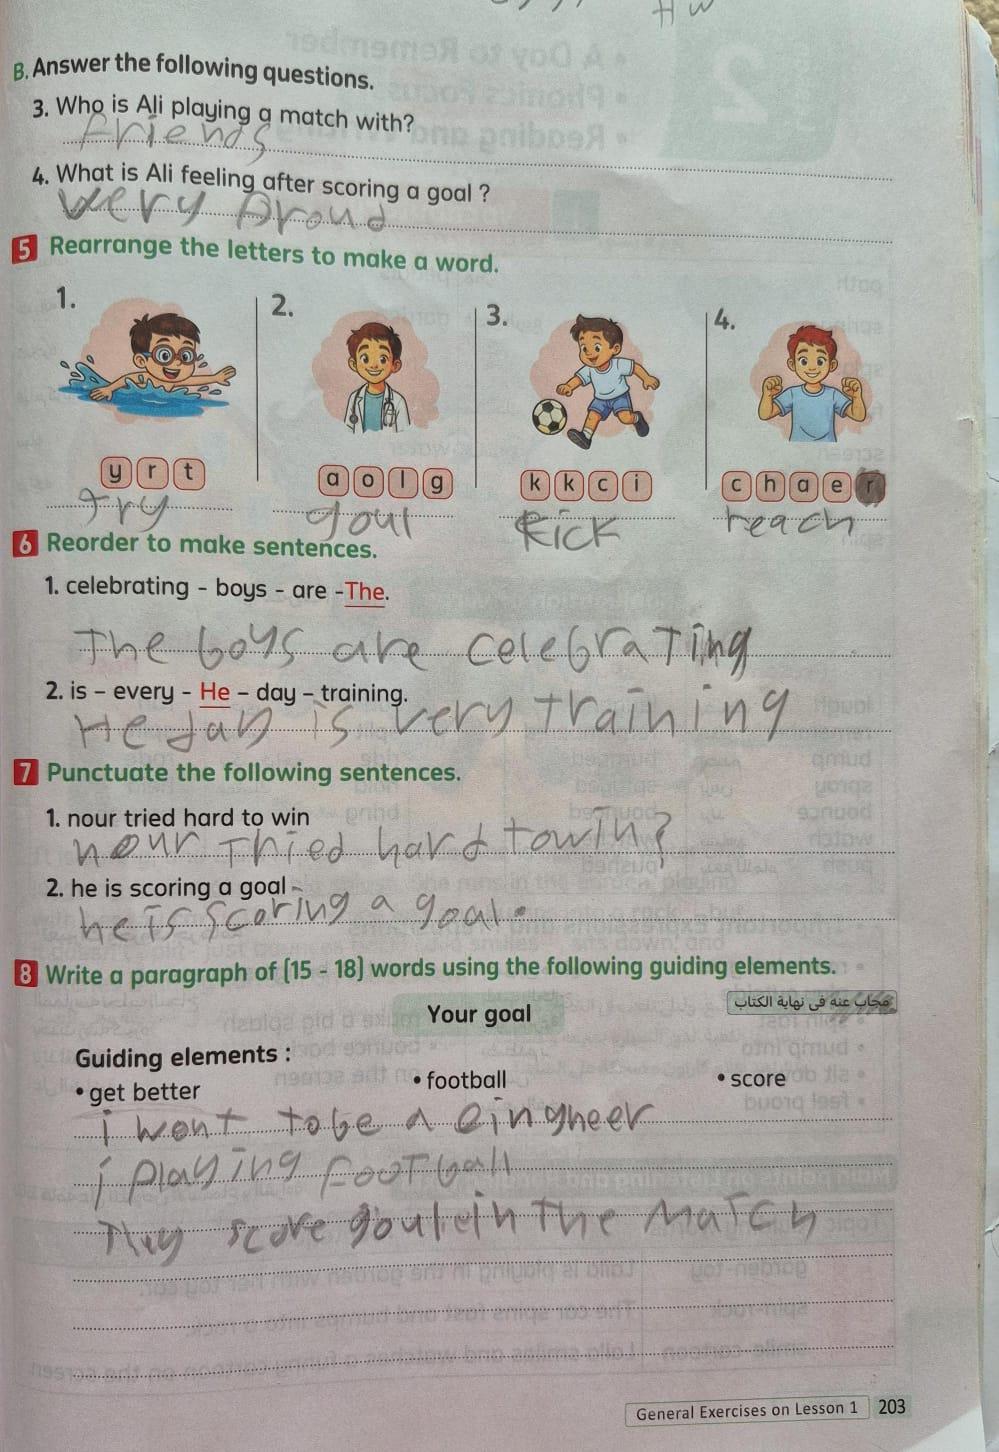 HW
B. Answer the following questions.
3. Who is Ali playing a match with?
friends
4. What is Ali feeling after scoring a goal ?
very proud
5 Rearrange the letters to make a word.
1. 2. 3. 4.
y r t a o l g k k c i c h a e r
try goul kick reach
6 Reorder to make sentences.
1. celebrating - boys - are -The.
The boys are celebrating
2. is – every - He – day – training.
He day is very training
7 Punctuate the following sentences.
1. nour tried hard to win
nour Thied hard towin?
2. he is scoring a goal
he is scoring a goal.
8 Write a paragraph of (15 - 18) words using the following guiding elements.
مجاب عنه فى نهاية الكتاب
Your goal
Guiding elements :
• get better • football • score
i wont tobe a eingheer
i playing football
They score in the match
General Exercises on Lesson 1 203